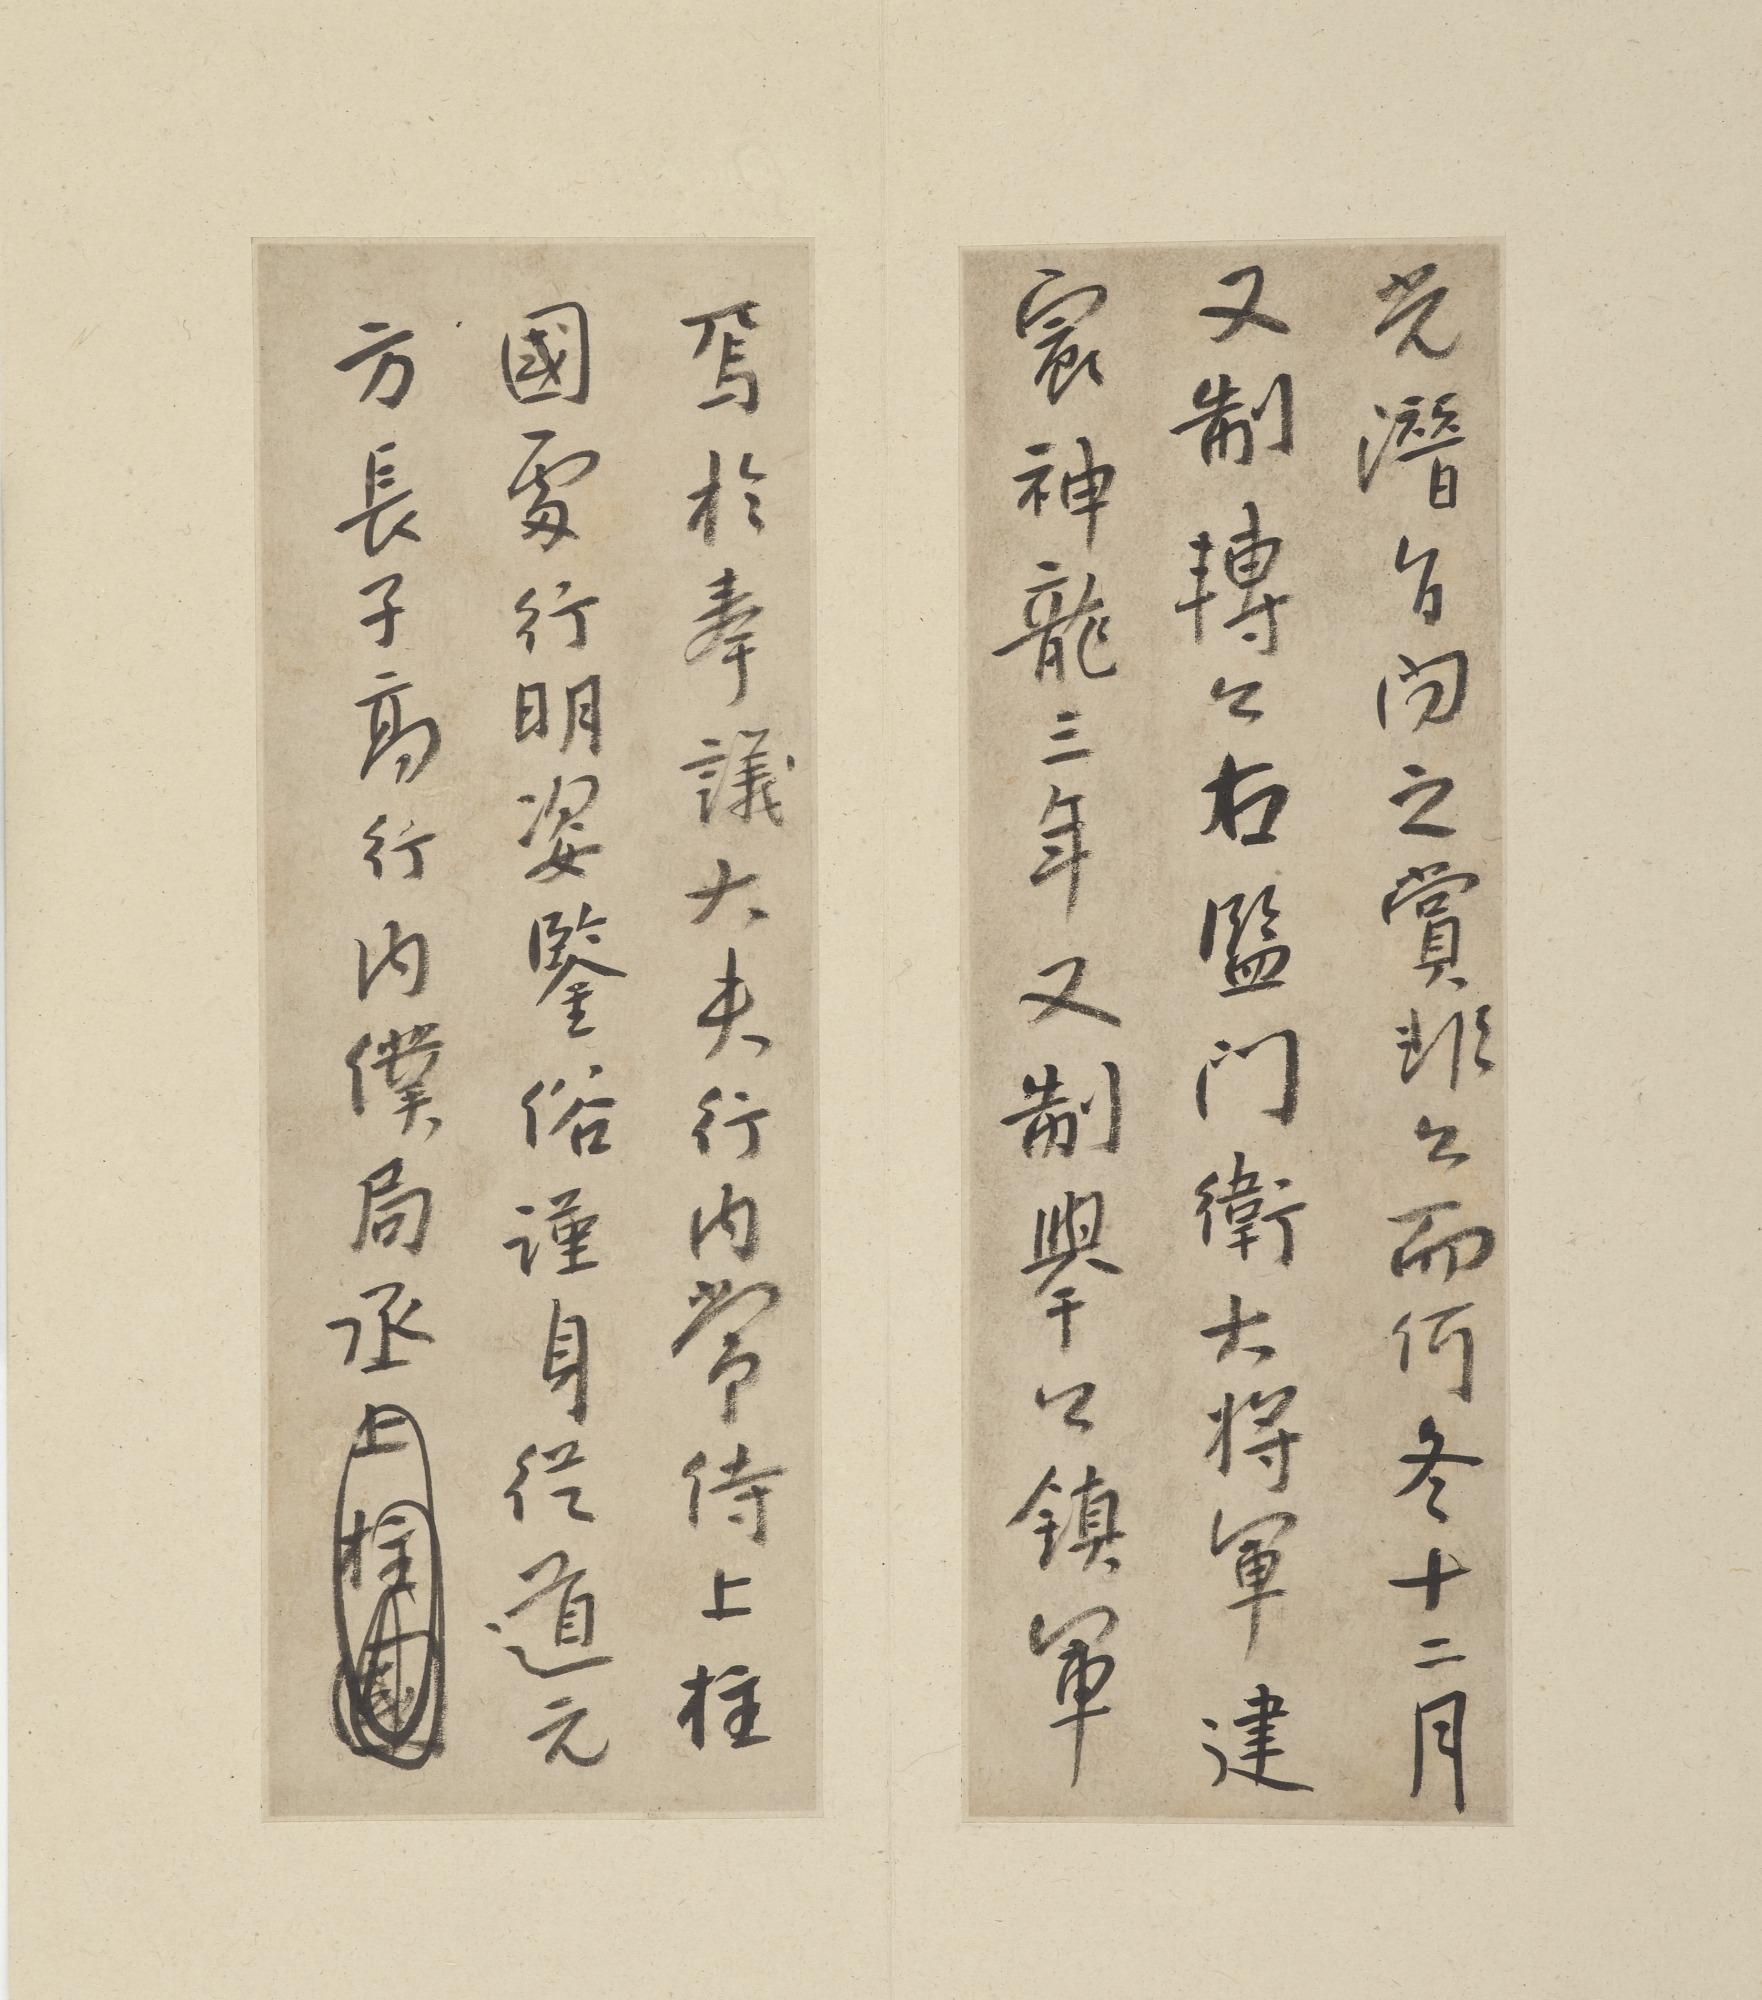 光潛之賞非公而何冬十二月
又制轉公右監門衛大將軍建
寰神龍三年又制舉公鎮軍
焉於奉議大夫行內常侍上柱
國處行明姿鑒俗謹身從道元
方長子高行內僕局丞上柱國